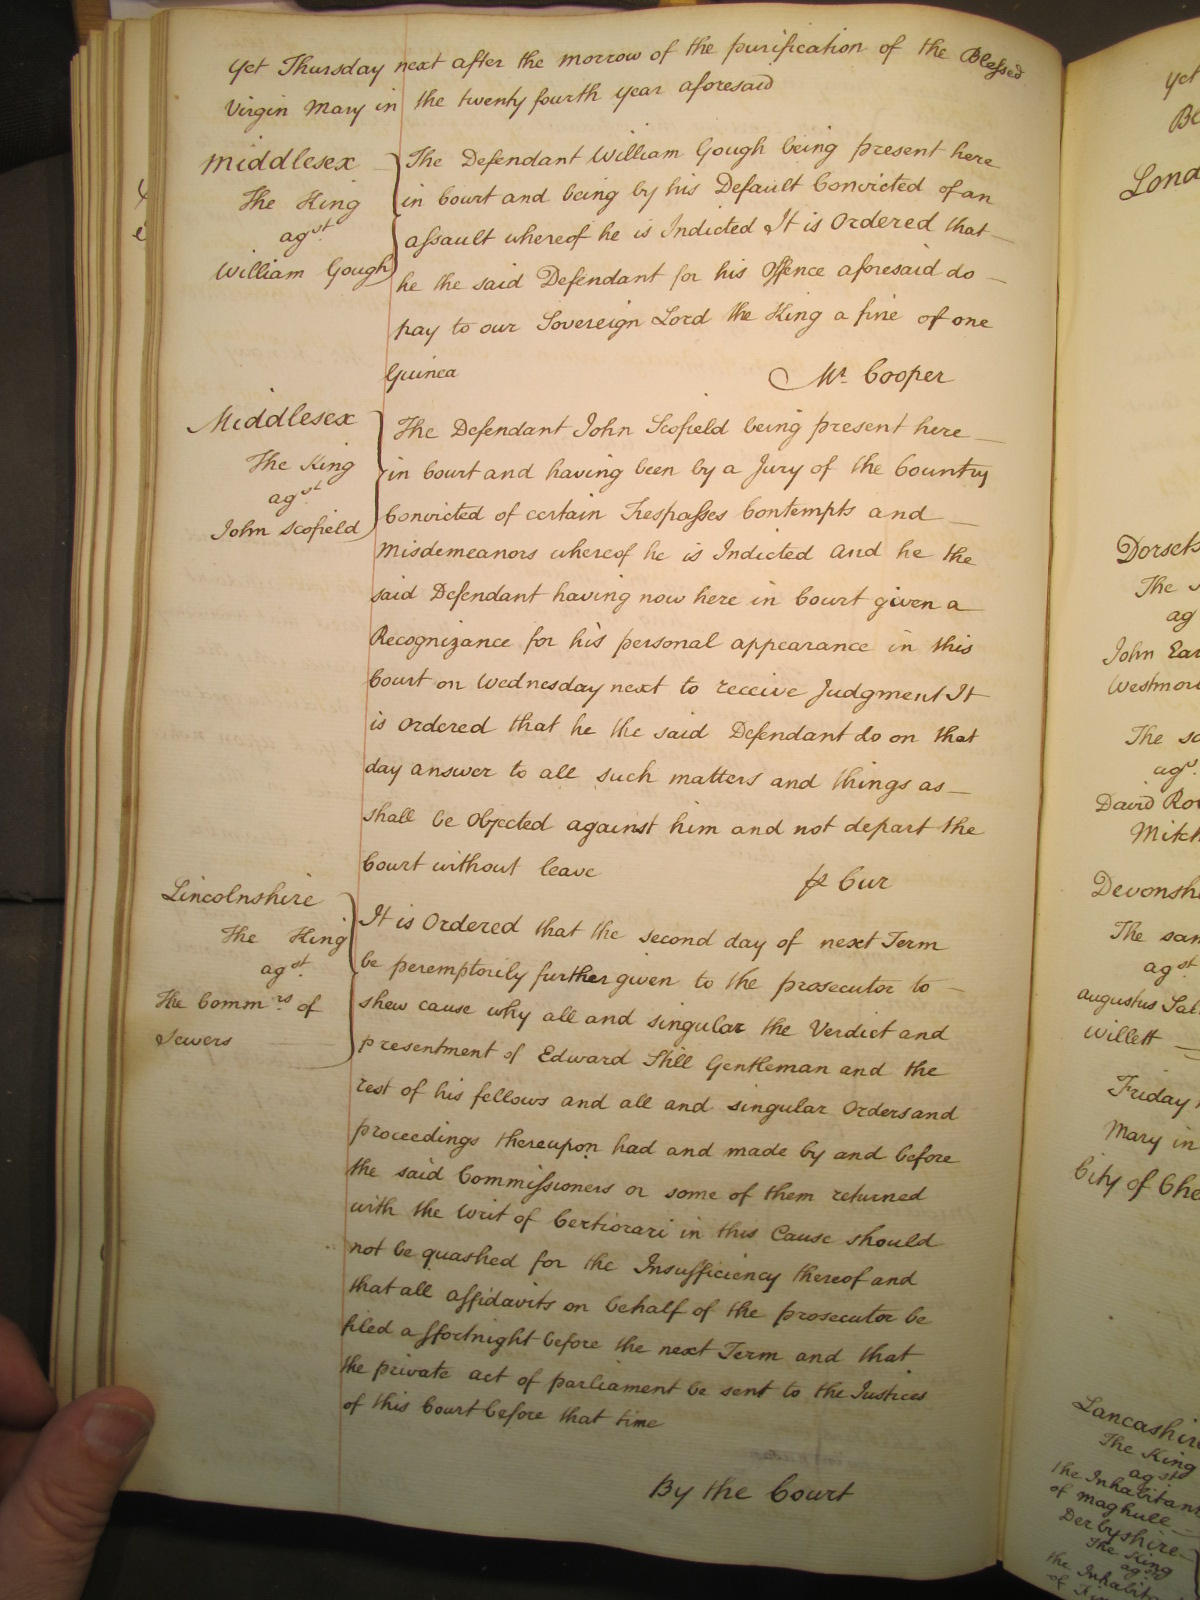 Yet Thursday next after the morrow of the purification of the Blessed
Virgin Mary in the twenty fourth year aforesaid
Middlesex
The King
agst.
William Gough
The Defendant William Gough being present here
in Court and being by his Default Convicted of an
assault whereof he is Indicted It is Ordered that
he the said Defendant for his Offence aforesaid do
pay to our Sovereign Lord the King a fine of one
Guinea
Mr. Cooper
Middlesex
The King
agst
John Scofield
The Defendant John Scofield being present here
in Court and having been by a Jury of the Country
Convicted of certain Trespasses Contempts and
Misdemeanors whereof he is Indicted And he the
said Defendant having now here in Court given a
Recognizance for his personal appearance in this
Court on Wednesday next to receive Judgment It
is Ordered that he the said Defendant do on that
day answer to all such matters and things as
shall be Objected against him and not depart the
Court without leave
P Cur
Lincolnshire
The King
agst.
The Commrs. of
Sewers
It is Ordered that the second day of next Term
be peremptorily further given to the prosecutor to
shew cause why all and singular the Verdict and
presentment of Edward Still Gentleman and the
rest of his fellows and all and singular Orders and
proceedings thereupon had and made by and before
the said Commissioners or some of them returned
with the Writ of Certiorari in this Cause should
not be quashed for the Insufficiency thereof and
that all affidavits on behalf of the prosecutor be
filed a ffortnight before the next Term and that
the private act of parliament be sent to the Justices
of this Court before that time
By the Court
Yet
Lond
Dorsets
The
ag
John Ear
Westmor
The sa
agst.
David Ro
Mitch
Devonsh
The sam
agst
Augustus Sal
Willett
Friday
Mary in
City of Che
Lancashire
The King
agst
the Inhabitan
of Maghull
Derbyshire
The King
agst
the Inhabita